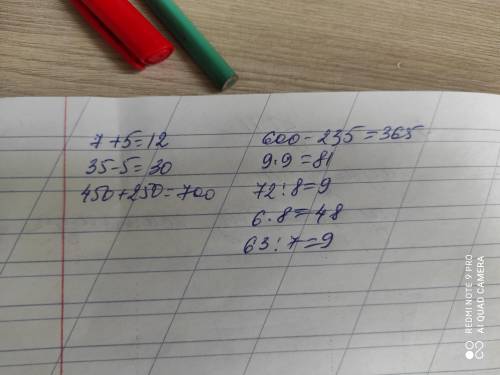 7+5=12
35-5=30
450+250=700
600-235=365
9·9=81
72:8=9
6·8=48
63:7=9
REDMI NOTE 9 PRO
AI QUAD CAMERA